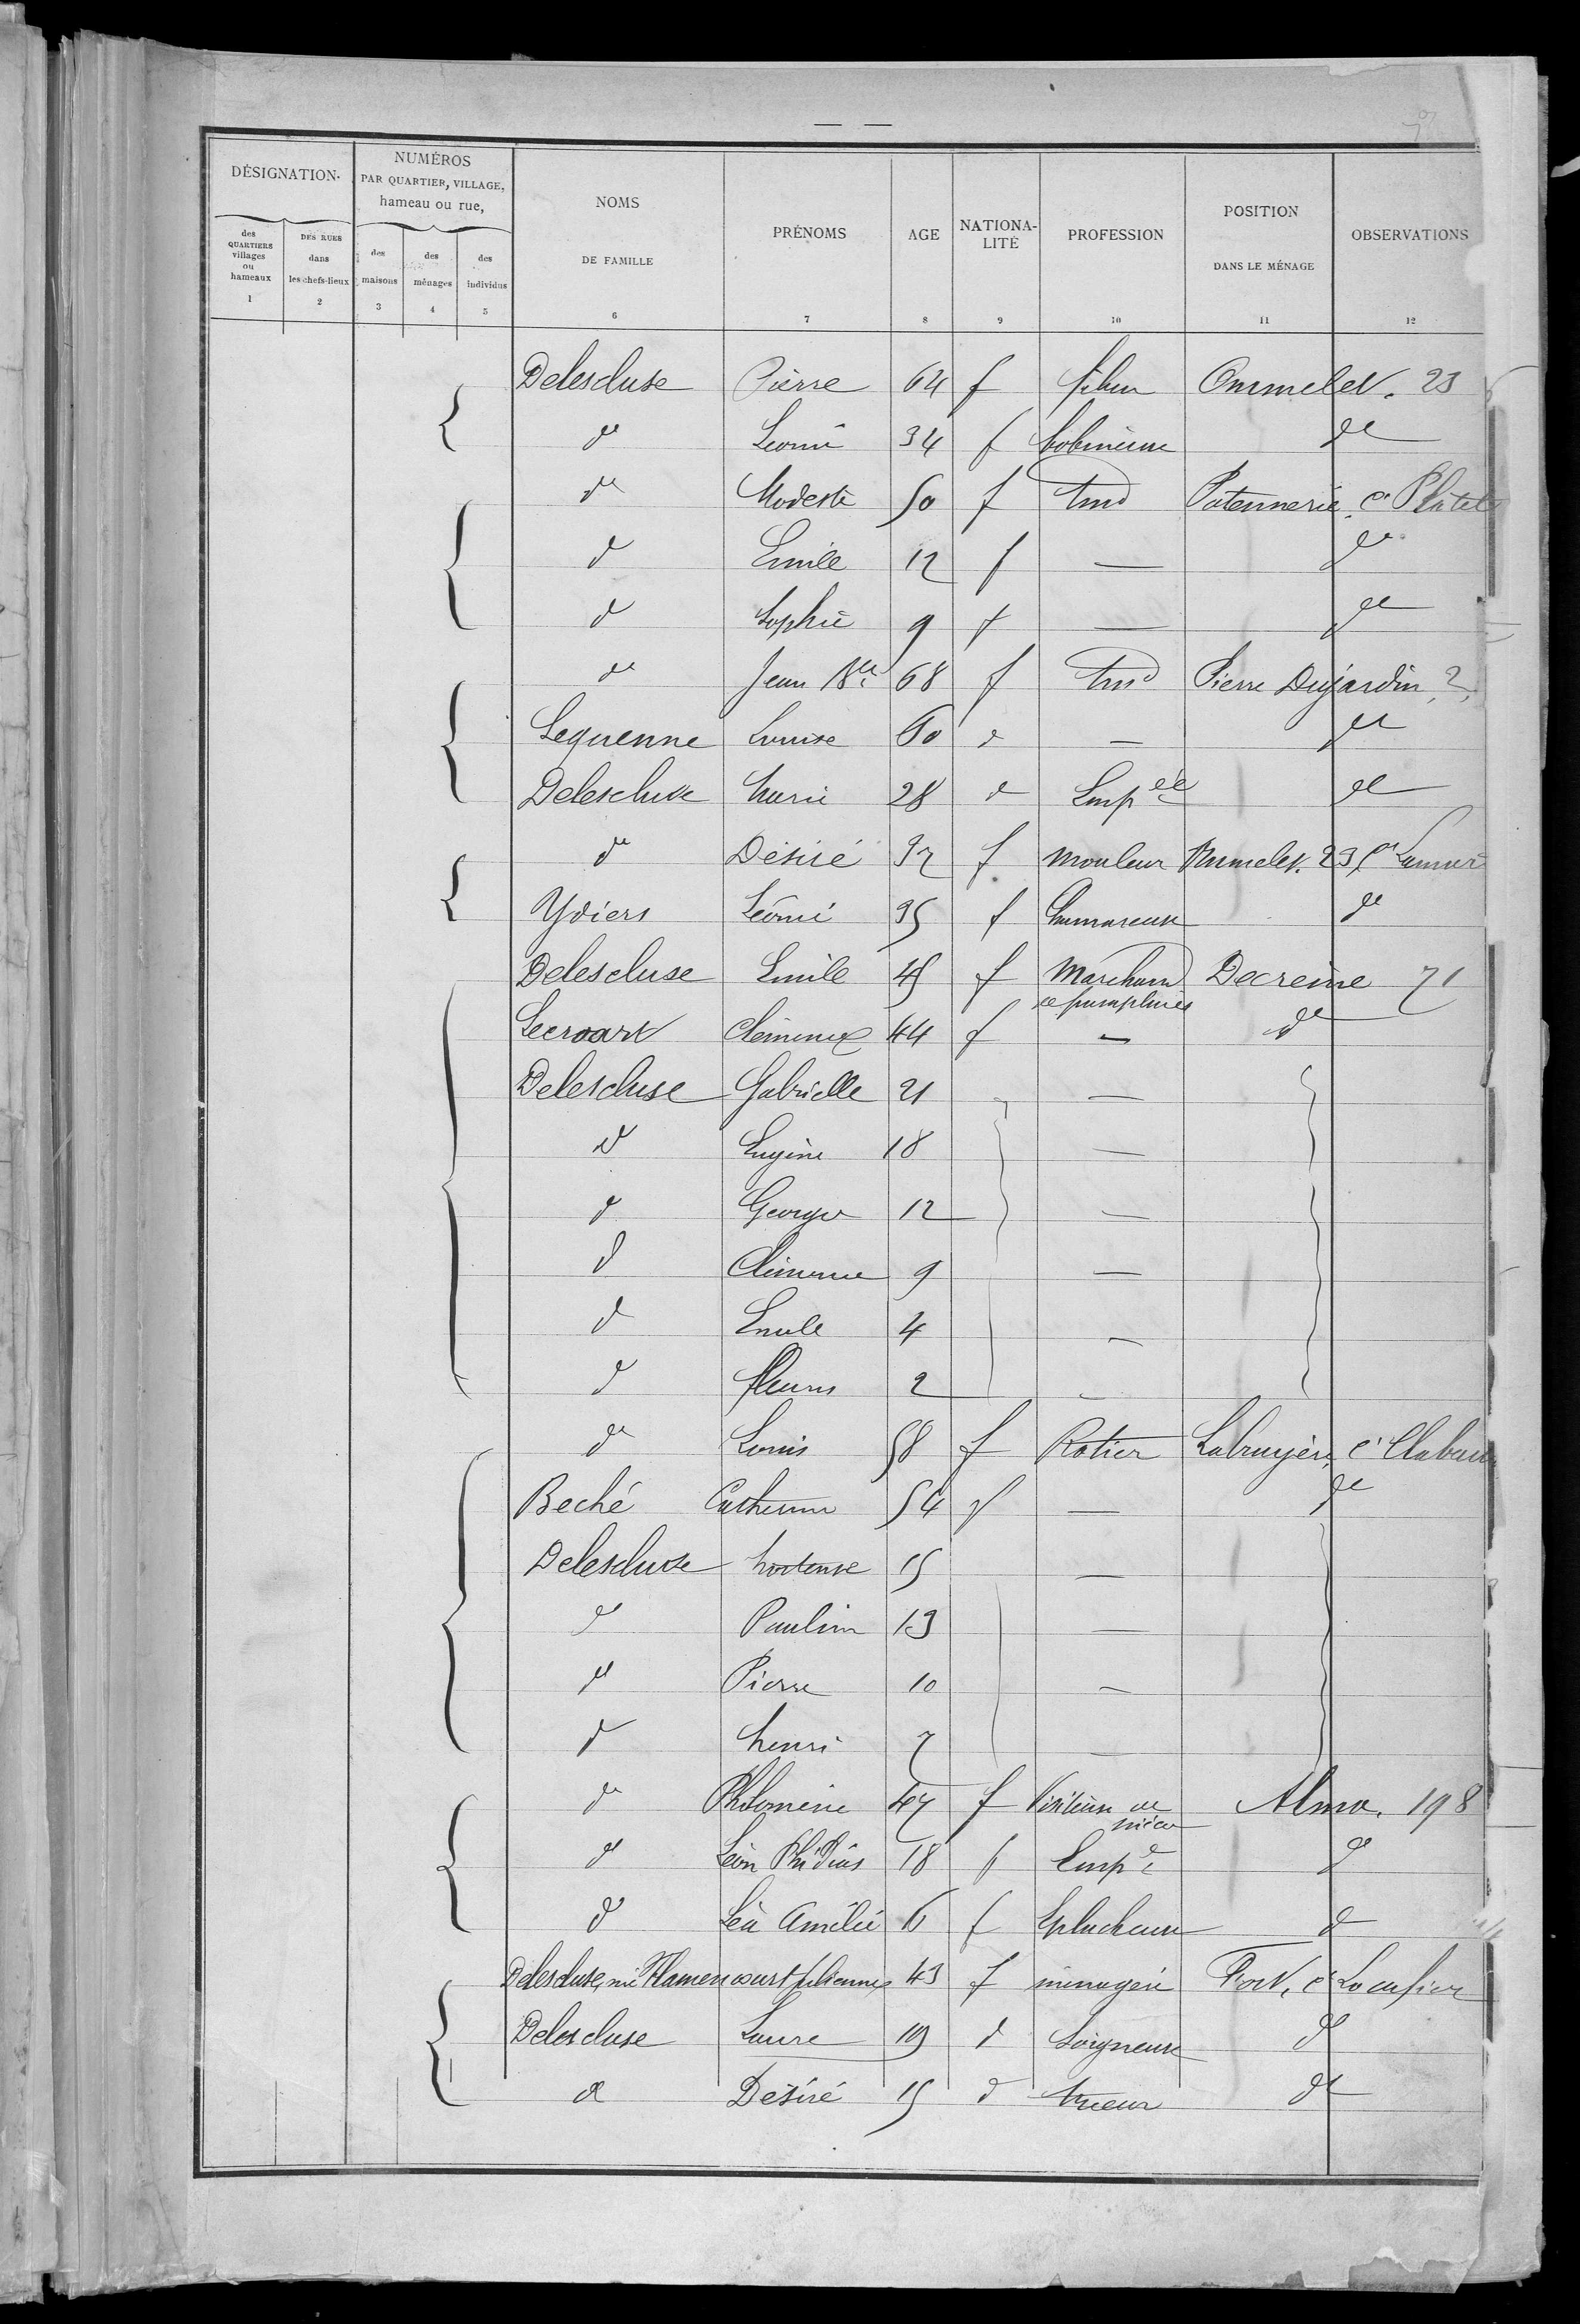 DÉSIGNATION
NUMÉROS
PAR QUARTIER, VILLAGE,
hameau ou rue,
NOMS
DE FAMILLE
PRÉNOMS
AGE
NATIONA-
LITÉ
PROFESSION
POSITION
DANS LE MÉNAGE
OBSERVATIONS
des
QUARTIERS
villages
ou
hameaux
DES RUES
dans
les chefs-lieux
des
maisons
des
ménages
des
individus
1 2 3 4 5 6 7 8 9 10 11 12
Delescluse Pierre 64 f fileur Ommelet. 23
d° Léonie 34 f bobineuse d°
d° Modeste 50 f tmd Potennerie, c°
d Emile 12 f — d°
d Sophie 9 f — d°
d° Jean Bte 68 f tmd Pierre Dujardin, 2
Lequenne Louise 60 d — d°
Delescluse Marie 28 d Empée d°
d° Désiré 32 f mouleur 23
Ydiers Léonie 35 f d°
Delescluse Emile 45 f Marchand Decreme 71
de parapluies
Lecroart Clémence 44 f — d°
Delescluse Gabrielle 21 —
d° Eugène 18 —
d Georges 12 —
d Clémence 9 —
d Emile 4 —
d fleuris 2 —
d° Louis 58 f Rotier Labruyère, c°
Beché Catherine 54 d° — d°
Delescluse hortense 15 —
d° Pauline 13 —
d° Pierre 10 —
d henri 7 —
d° Philomène 47 f Visiteuse de Alma. 198
pièces
d° Léon 18 f Empé d°
d° Léa Amélie f Eplucheuse d
Delescluse, née Flamencourt 43 f ménagère Fort, c°
Delescluse Laure 19 d Soigneuse d°
d° Désiré 15 d trieur d°